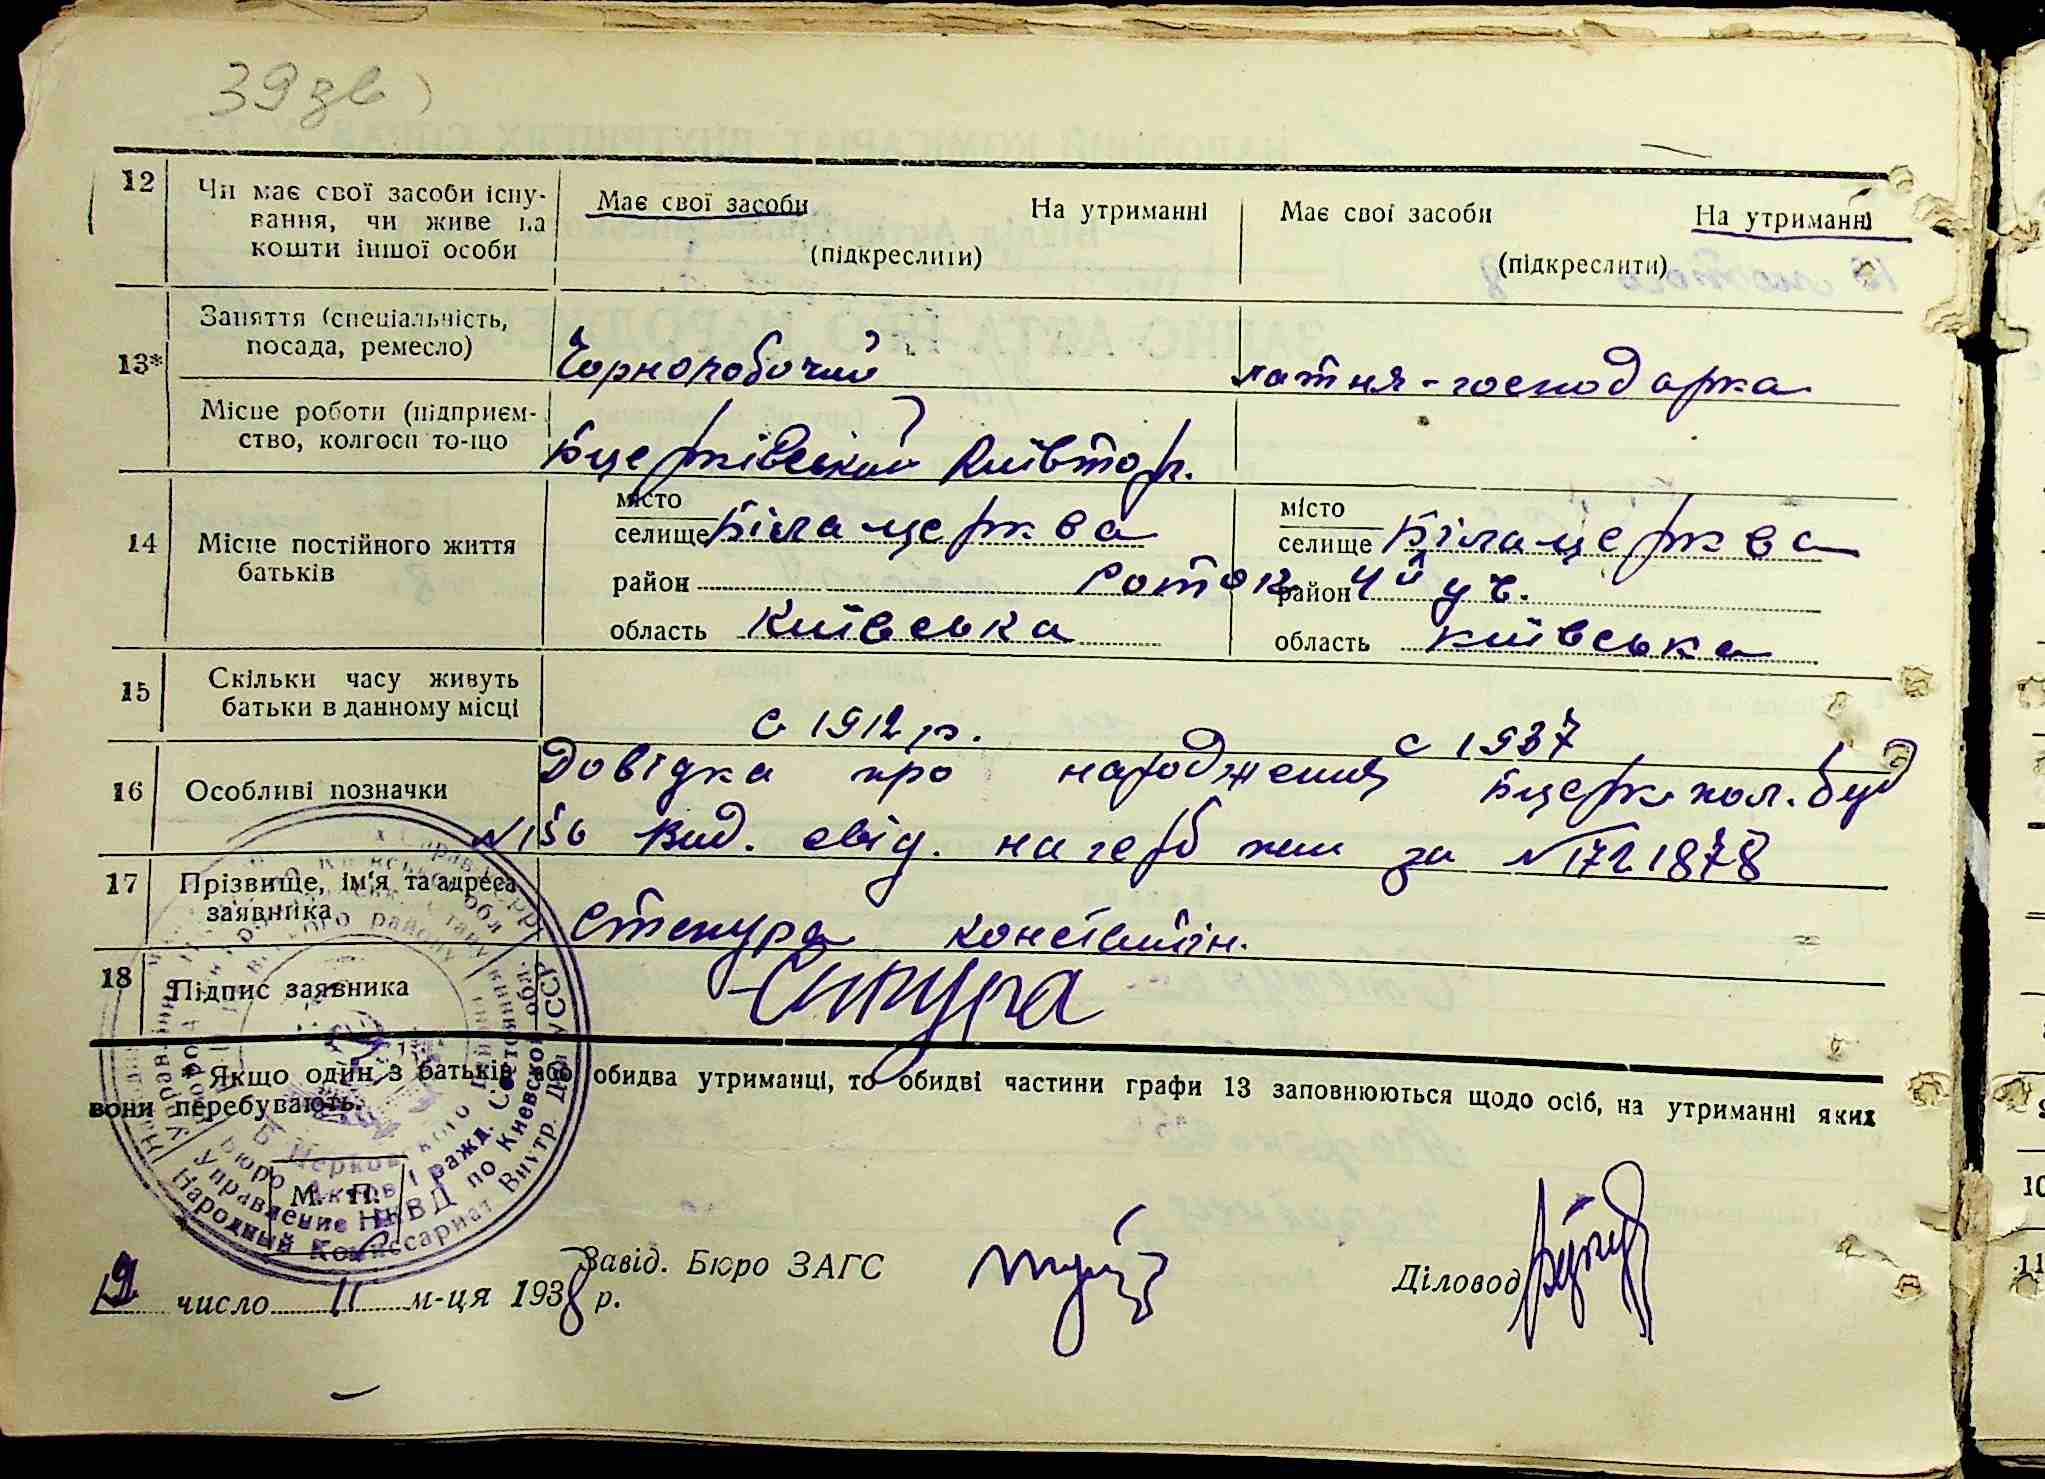 39 зв
12 Чи має свої засоби існу-
вання, чи живе на
кошти іншої особи
Має свої засоби На утриманні
(підкреслити)
Має свої засоби На утриманні
(підкреслити)
13* Заняття (спеціальність,
посада, ремесло)
Чорноробочий хатня-господарка
Місце роботи (підприєм-
ство, колгосп то-що
Бцерківський Київторг.
14 Місце постійного життя
батьків
місто
селище Біла церква
район Роток 4й уч.
область Київська
місто
селище Біла церква
район
область Київська
15 Скільки часу живуть
батьки в данному місці
с 1912 р. с 1937
16 Особливі позначки
Довідка про народження Бцерк пол. буд
№ 156 Вид. свід. на герб за № 1721878
17 Прізвище, ім'я та адреса
заявника
Степура Констянтін.
18 Підпис заявника
* Якщо один з батьків або обидва утриманці, то обидві частини графи 13 заповнюються щодо осіб, на утриманні яких
вони перебувають.
Народный Комиссариат Внутр. Дел УССР
Управление НКВД по Киевской обл.
Бюро Актов Гражд. Сост.
М. П.
Завід. Бюро ЗАГС
Діловод
12 число 11 м-ця 1938 р.